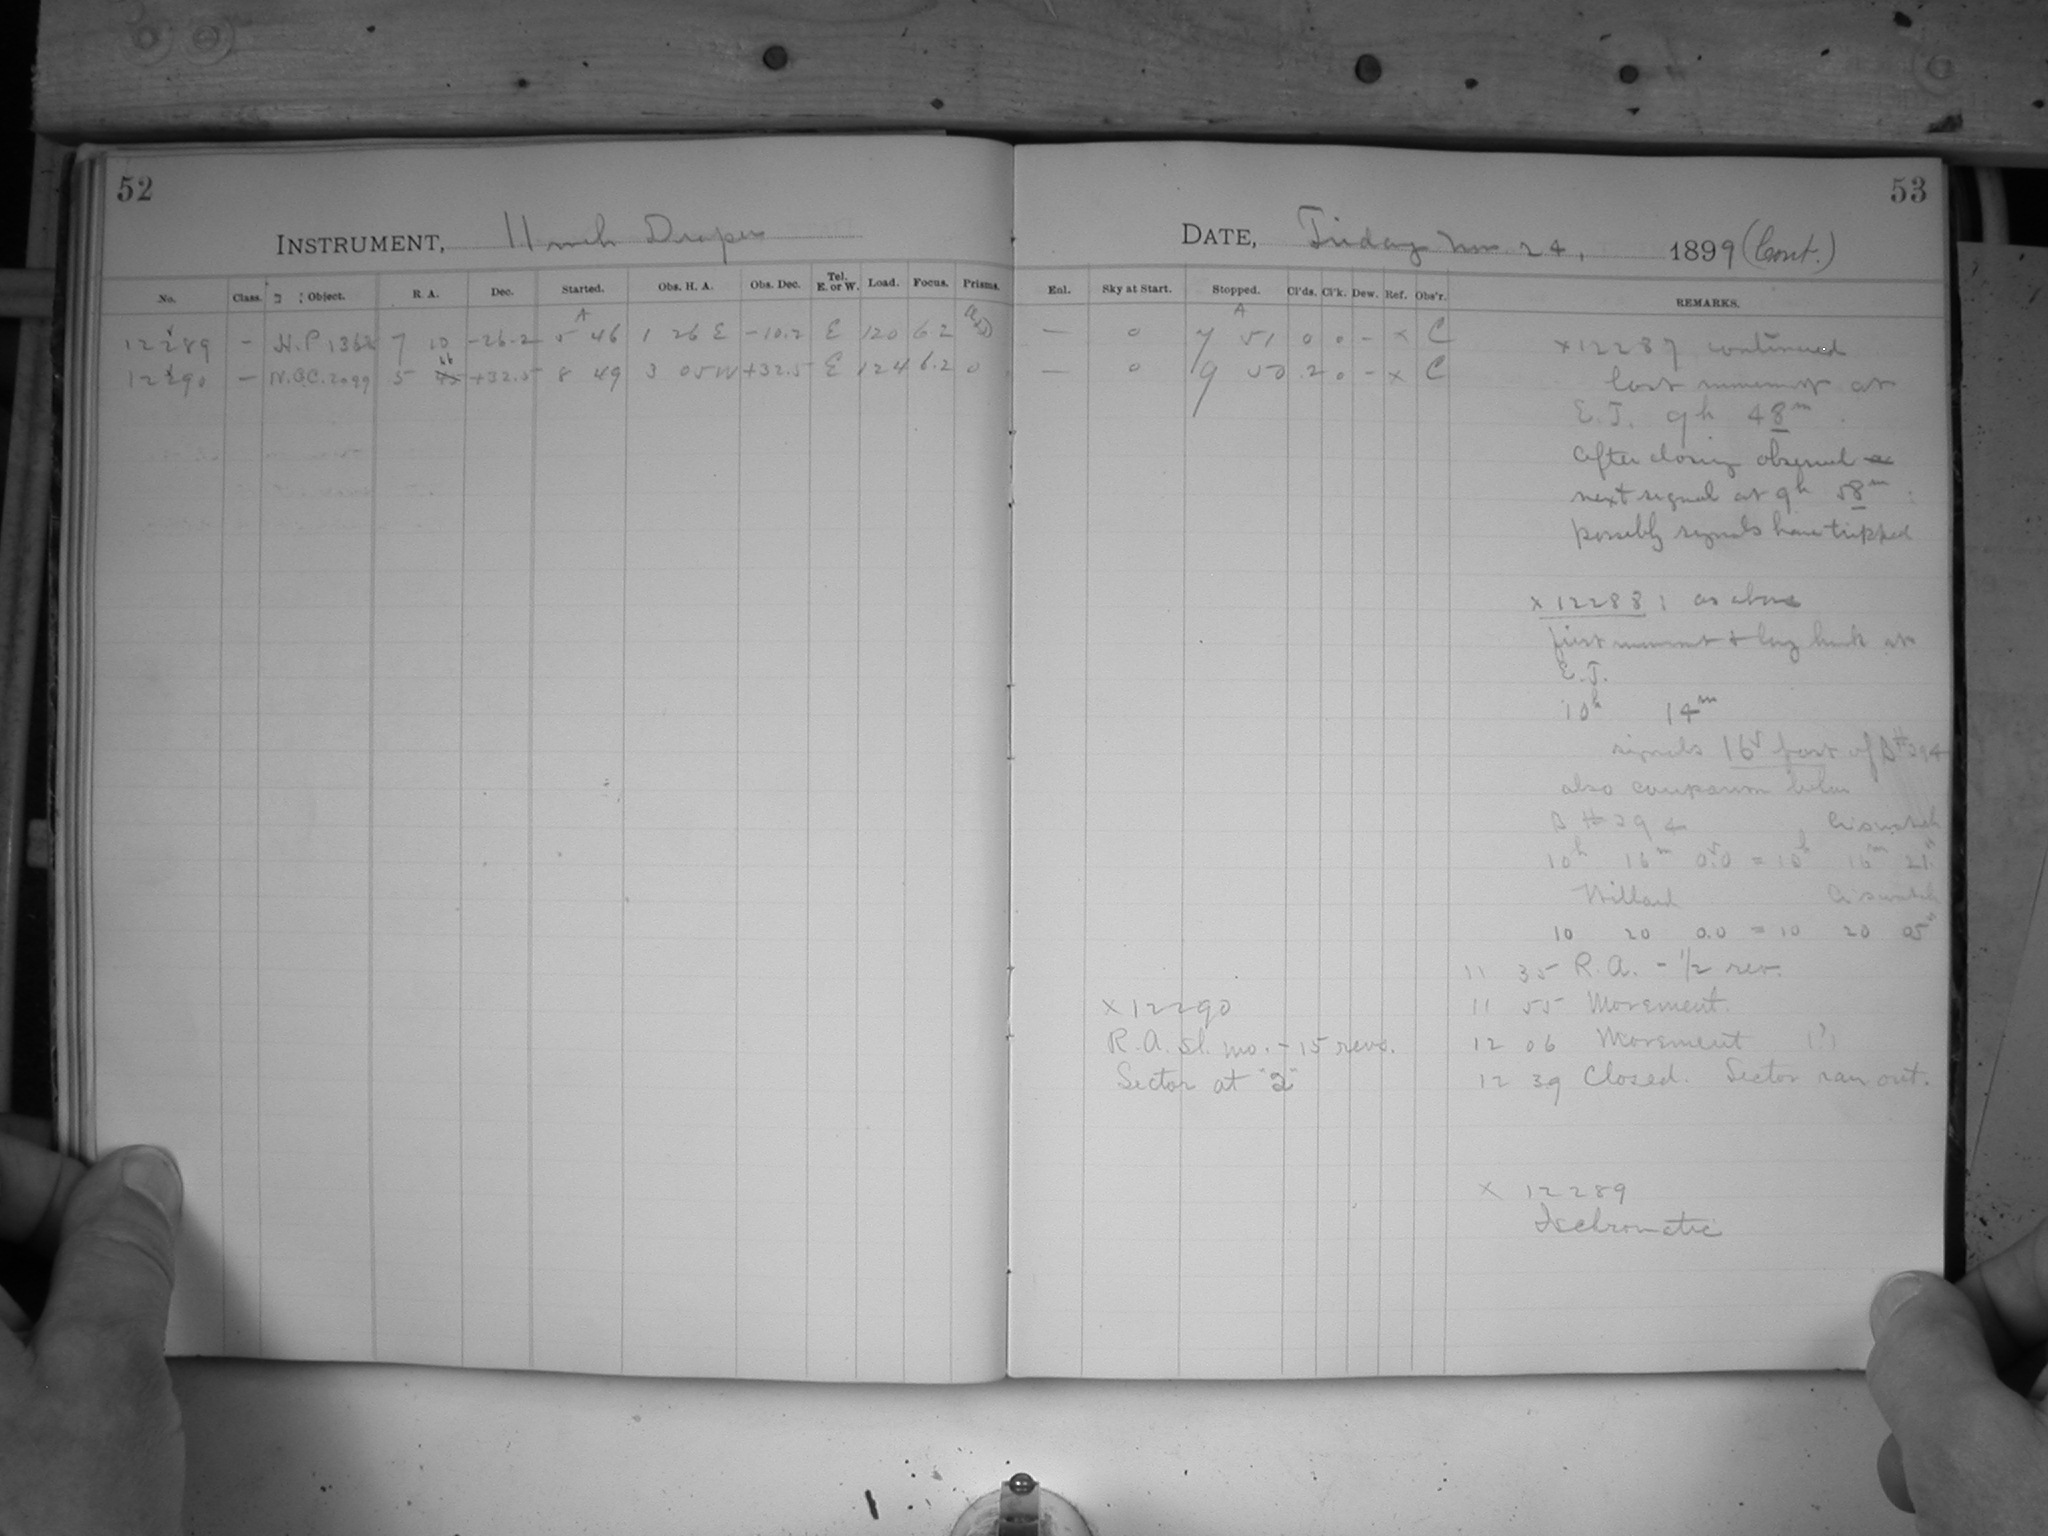 52
INSTRUMENT, 11 inch Draper
No. Class. Object. R. A. Dec. Started. Obs. H. A. Obs. Dec. Tel. E. or W. Load. Focus. Prisms.
A
12289 - H.P 1362 7 10 -26.2 5 46 1 26 E -10.2 E 120 6.2
12290 - N.G.C. 2099 5 46 +32.5 8 49 3 05 W +32.5 E 124 6.2 0
53
DATE, Friday Nov. 24, 1899 (Cont.)
Enl. Sky at Start. Stopped. Cl'ds. Cl'k. Dew. Ref. Obs'r. REMARKS.
A
— 0 7 51 0 0 - x C
— 0 9 50 .2 0 - x C
x 12287 continued
last movement at
E.T. 9h 48m.
after closing observed
next signal at 9h 58m:
possibly signals have tripped
x 12288: as above
first movement & long break at
E.T.
10h 14m
signals 16s fast of B#394
also comparison below
B #394
10h 16m 0.0s = 10h 16m 21s
Willard
10 20 0.0 = 10 20 05s
11 35 R.A. - 1/2 rev.
11 55 Movement.
12 06 Movement
12 39 Closed. Sector ran out.
x 12290
R.A. Sl. mo. - 15 revs.
Sector at "2"
x 12289
Isochromatic